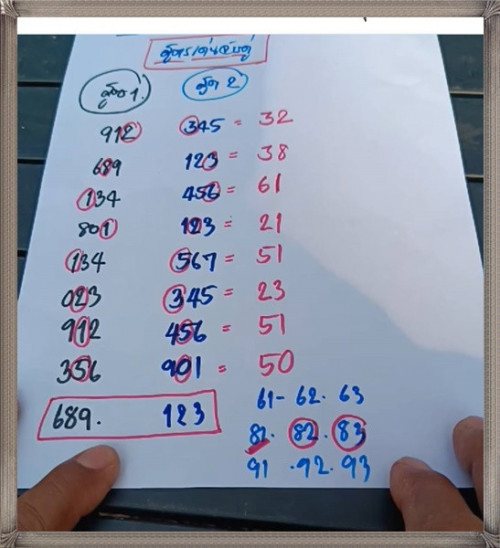 สูตรเด่นจับคู่
สูตร 1. สูตร 2
912 345 = 32
689 123 = 38
134 456 = 61
801 123 = 21
134 567 = 51
023 345 = 23
912 456 = 51
356 901 = 50
689. 123
61 - 62. 63
81. 82. 83
91 .92. 93